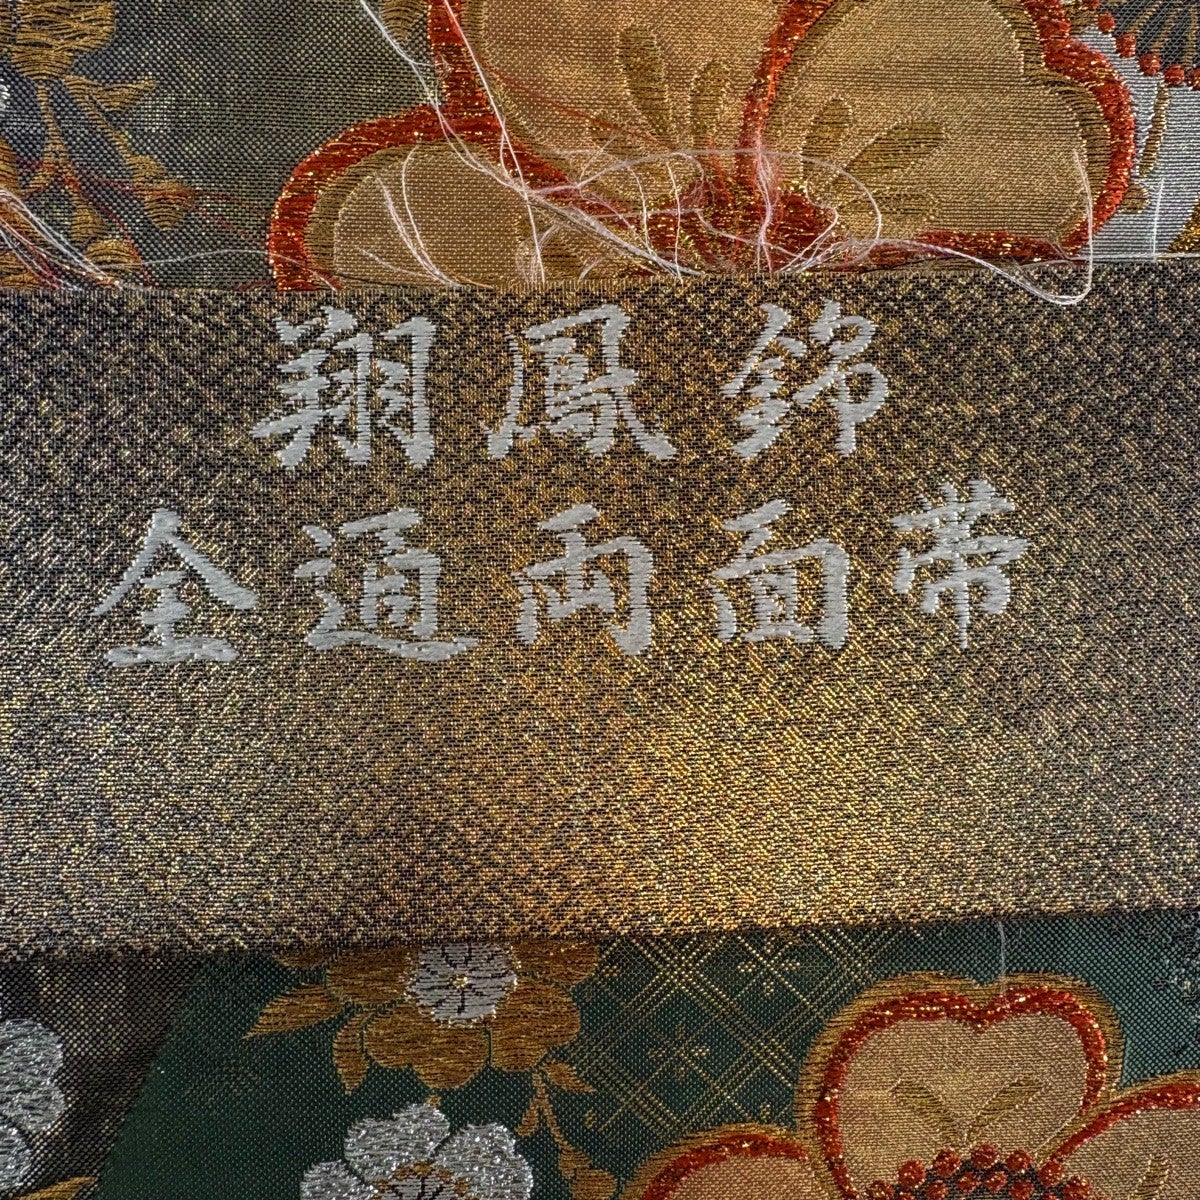 翔鳳錦
全通両面帯